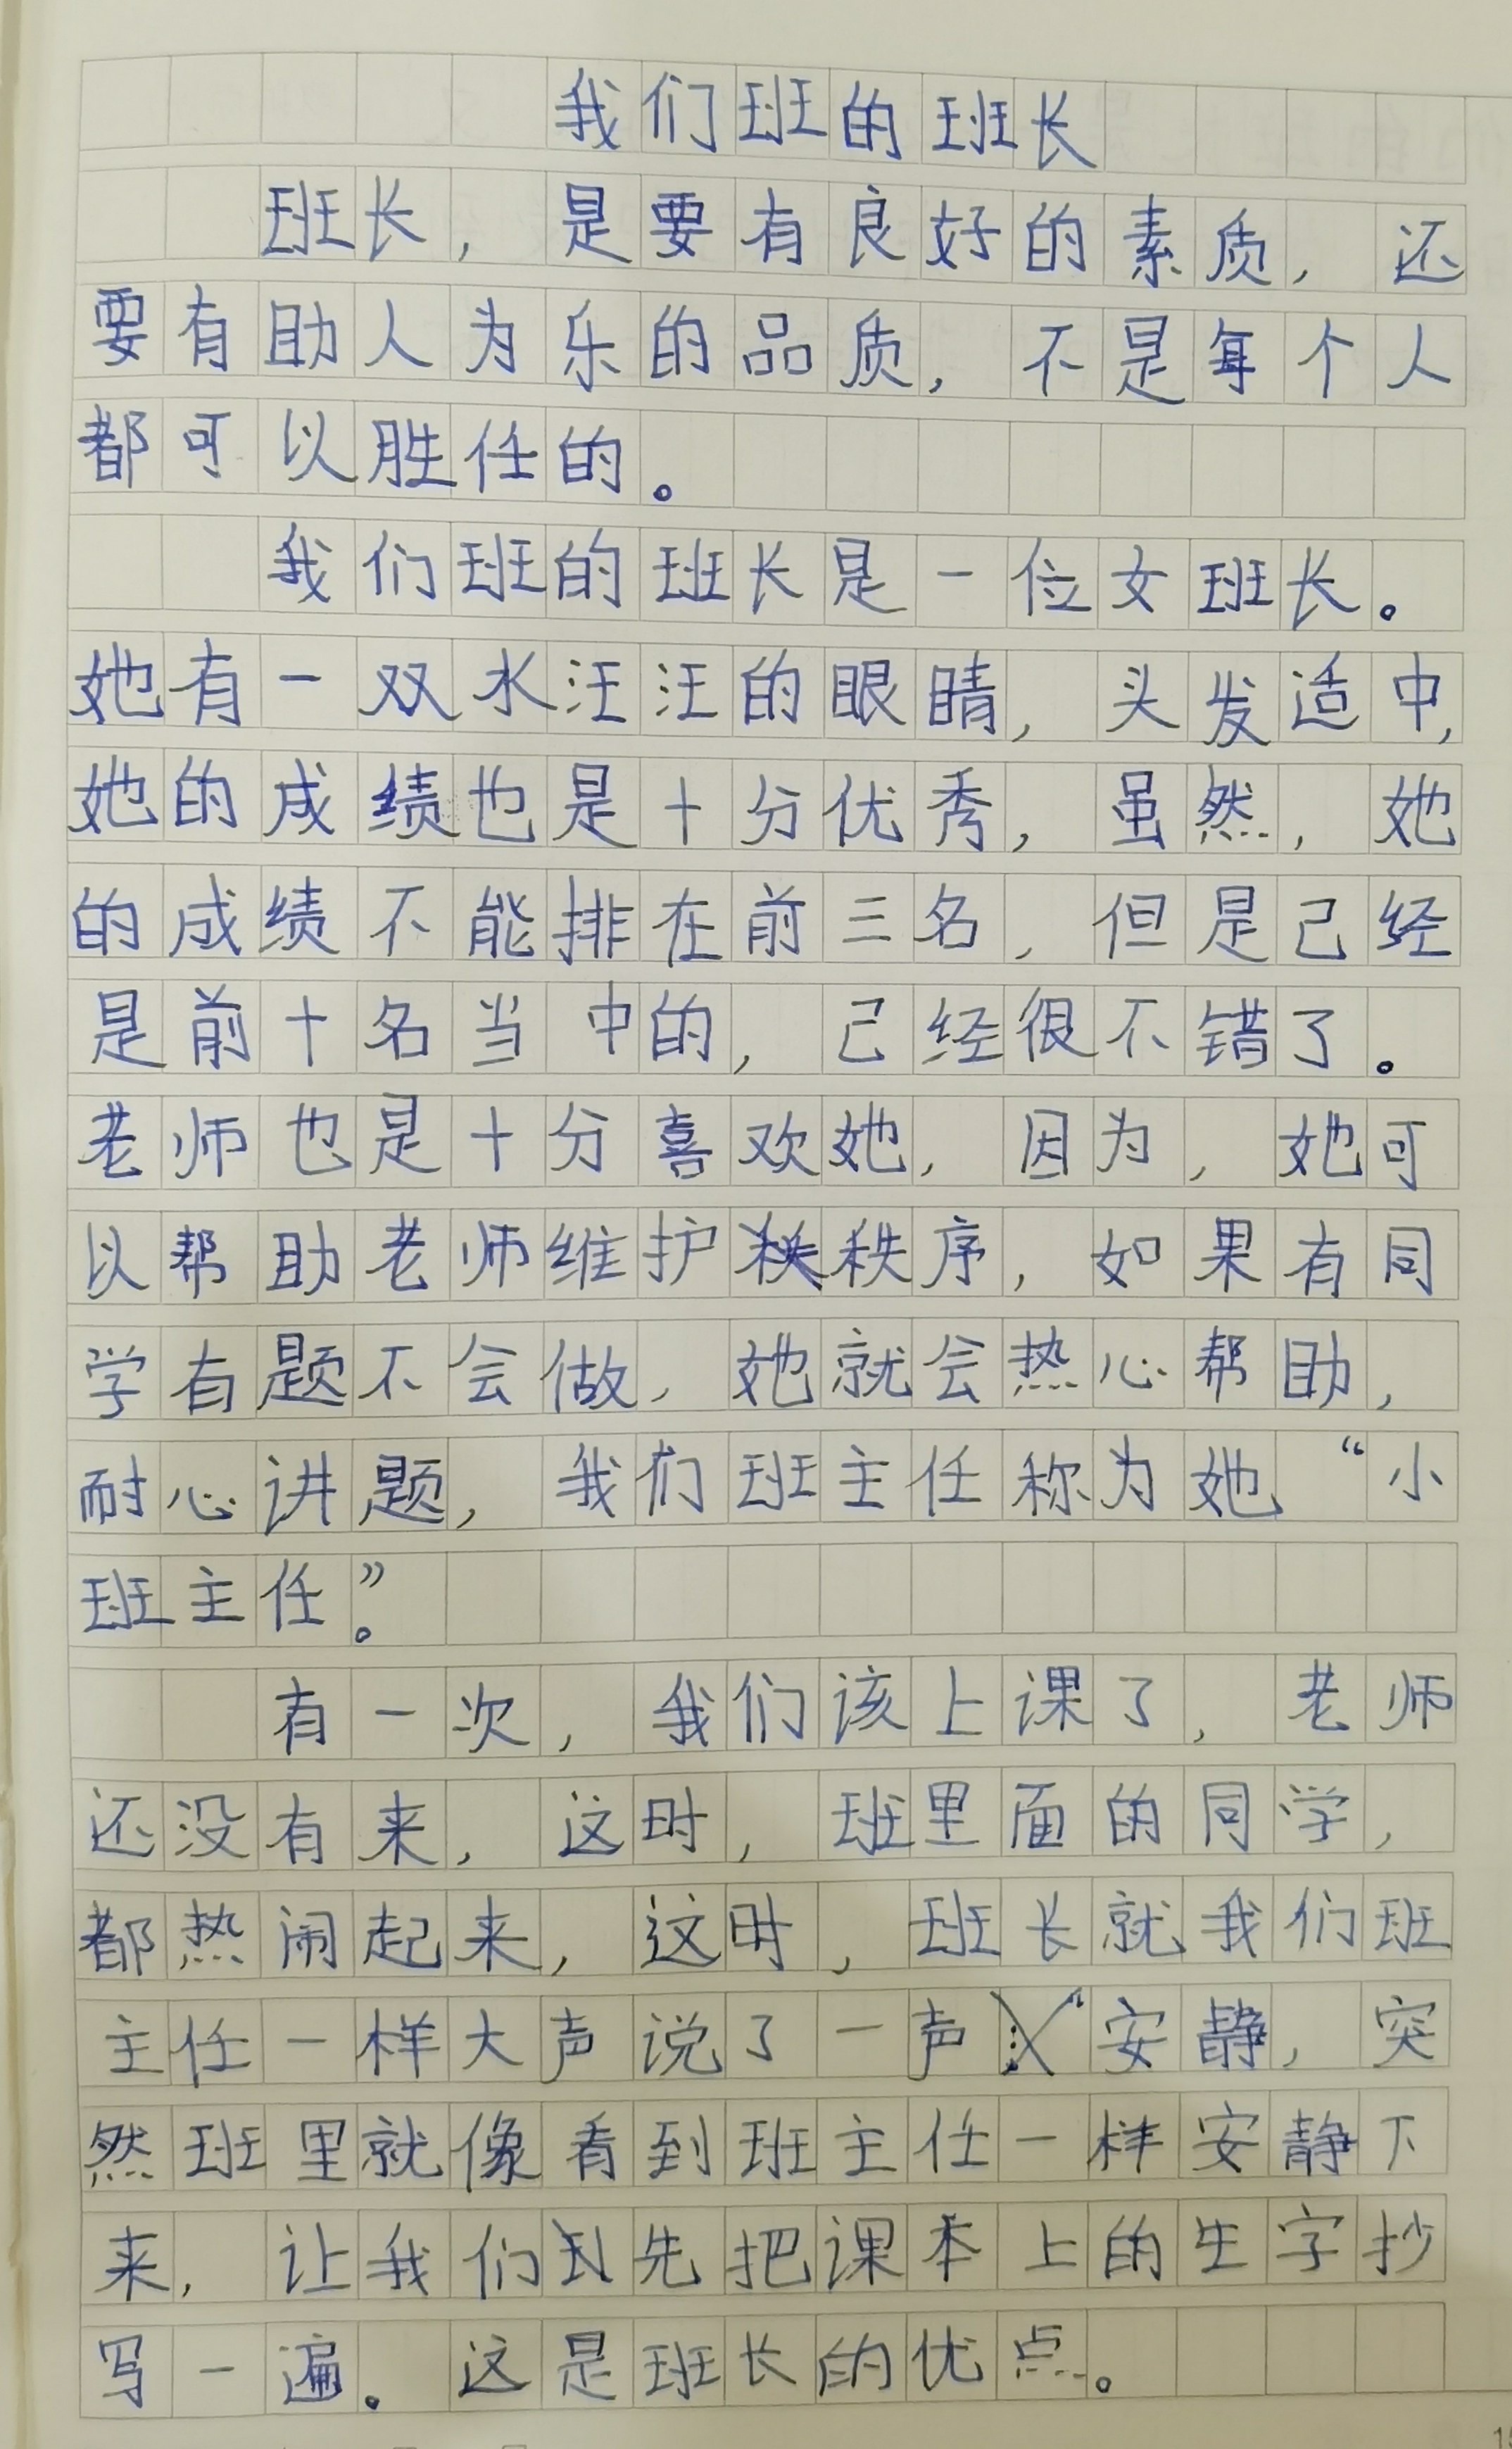 我们班的班长
班长，是要有良好的素质，还
要有助人为乐的品质，不是每个人
都可以胜任的。
我们班的班长是一位女班长。
她有一双水汪汪的眼睛，头发适中，
她的成绩也是十分优秀，虽然，她
的成绩不能排在前三名，但是己经
是前十名当中的，己经很不错了。
老师也是十分喜欢她，因为，她可
以帮助老师维护秩序，如果有同
学有题不会做，她就会热心帮助，
耐心讲题，我们班主任称为她“小
班主任”。
有一次，我们该上课了，老师
还没有来，这时，班里面的同学，
都热闹起来，这时，班长就我们班
主任一样大声说了一声安静，突
然班里就像看到班主任一样安静下
来，让我们先把课本上的生字抄
写一遍。这是班长的优点。